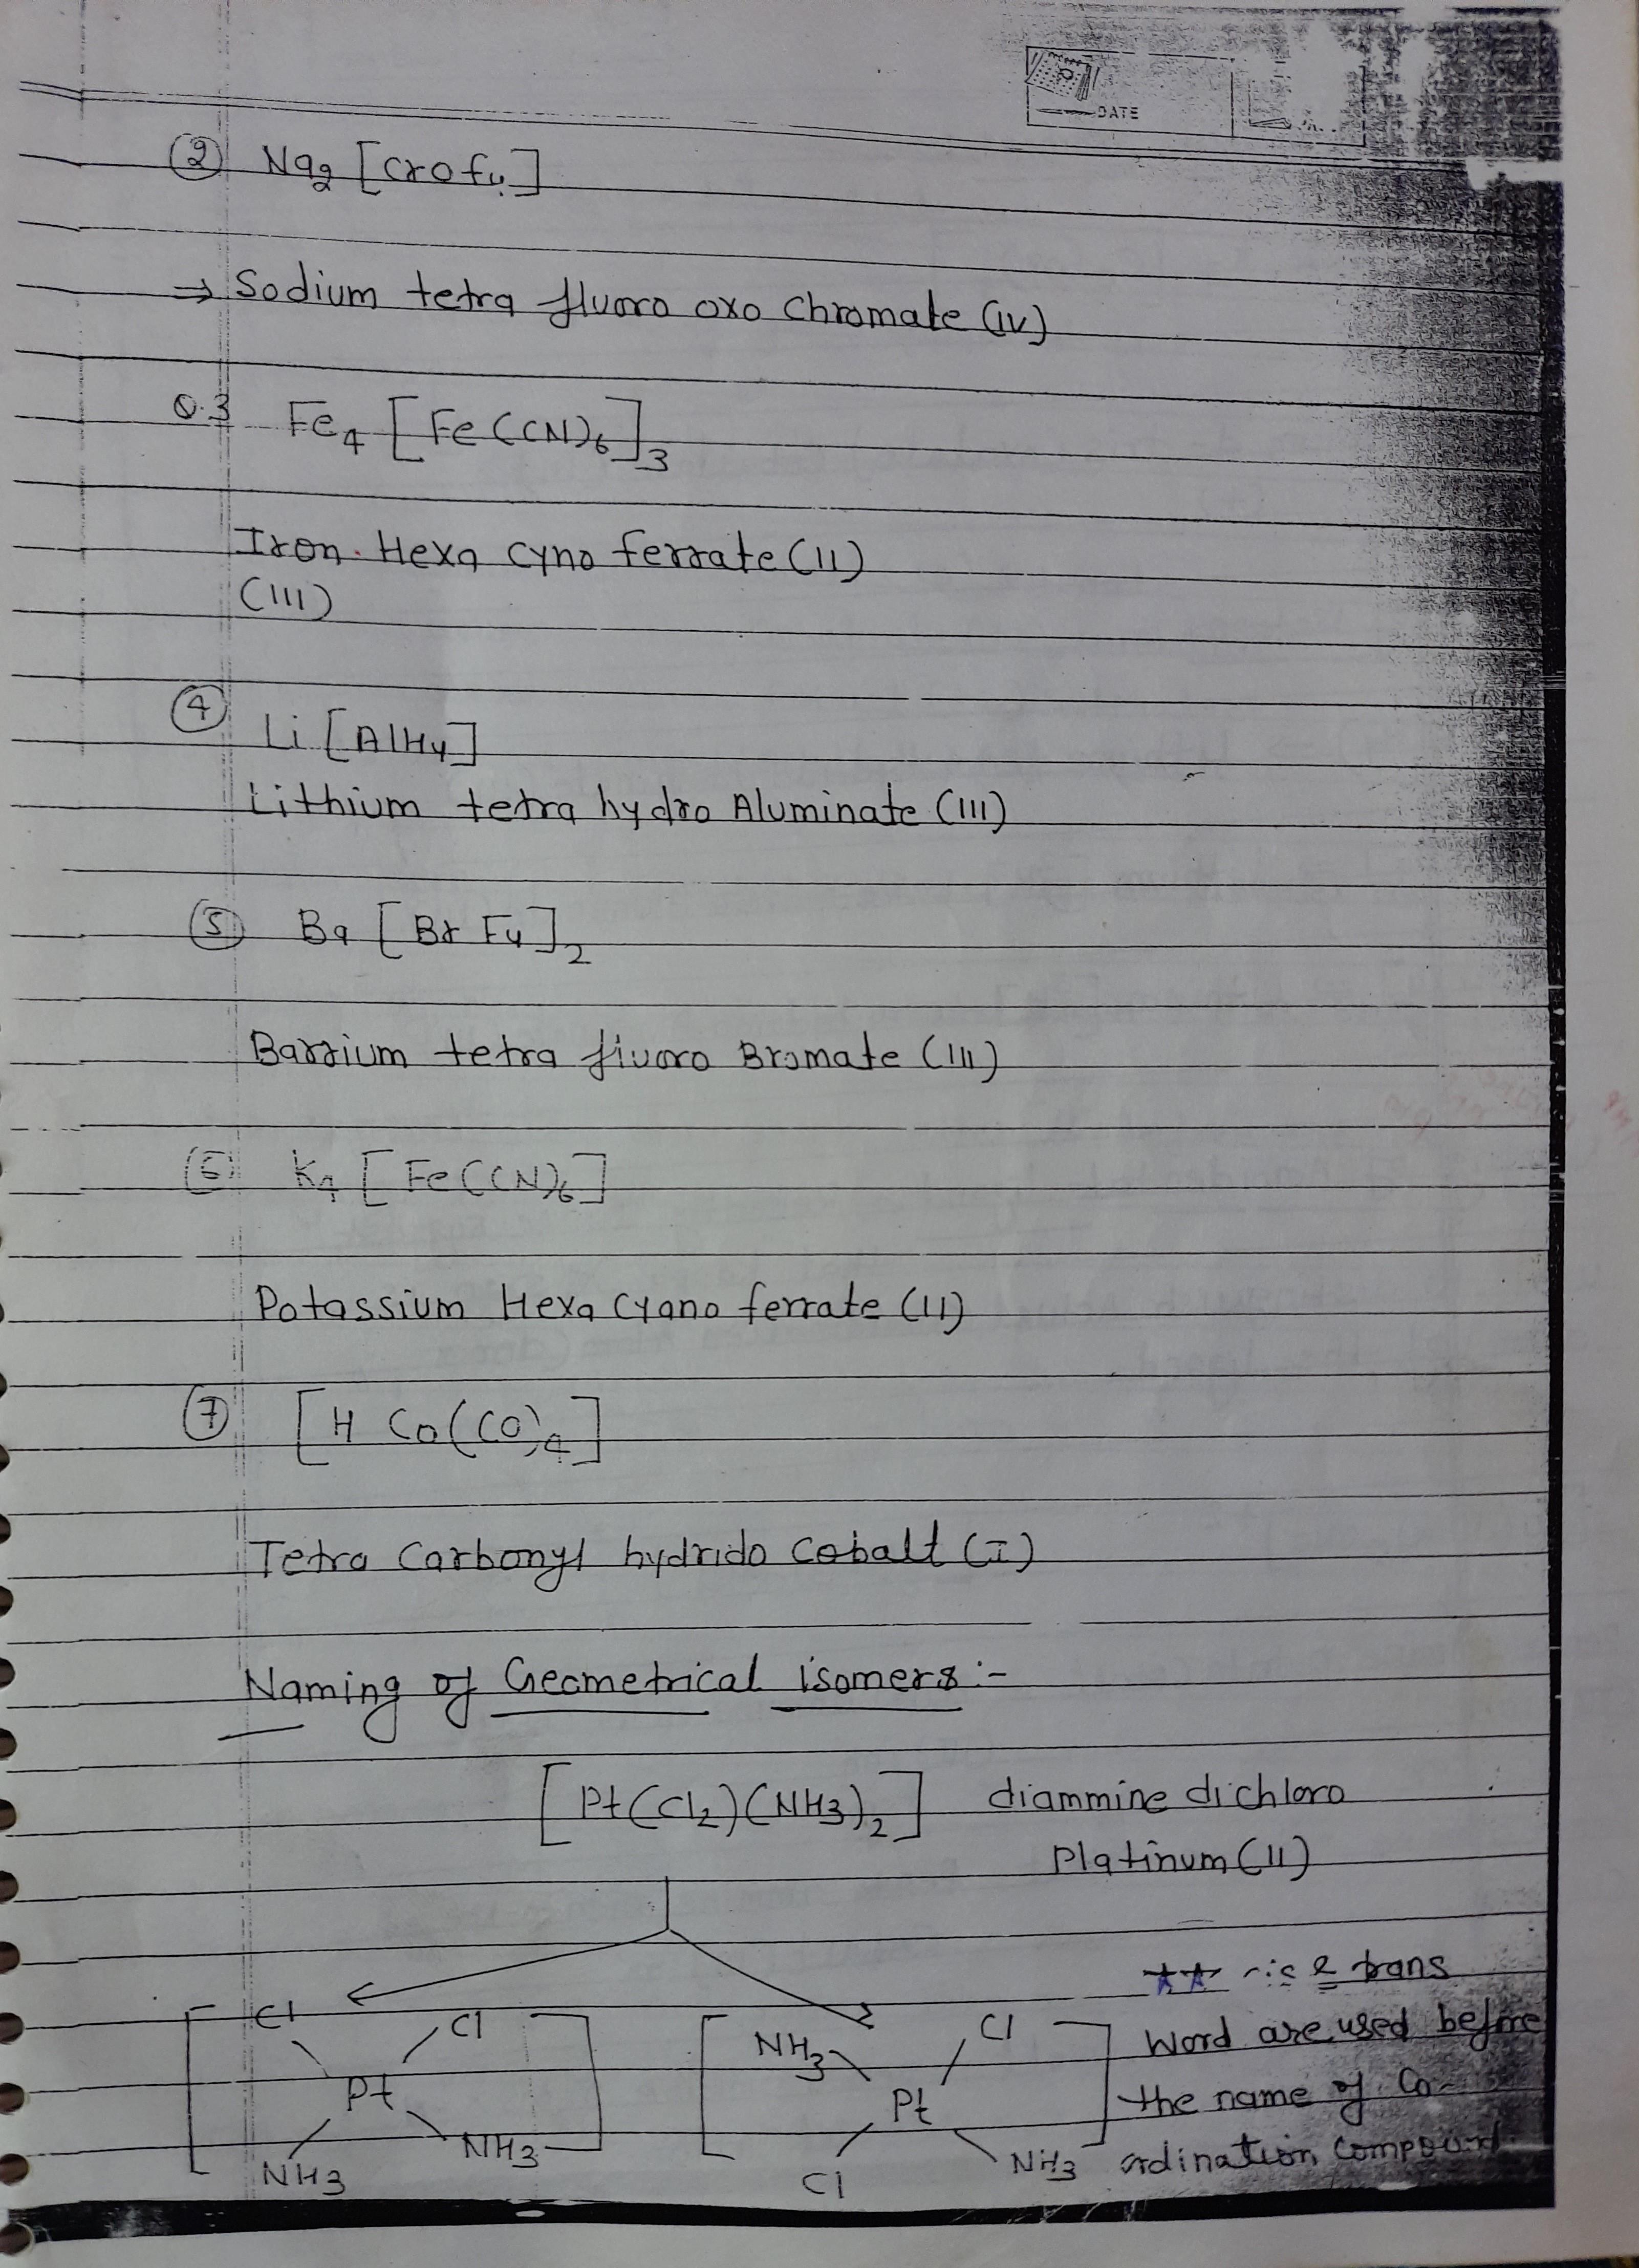 DATE
② Na2 [CrOF4]
⇒ Sodium tetra fluoro oxo Chromate (iv)
Q.3 Fe4 [Fe(CN)6]3
Iron Hexa Cyno ferrate (II)
(III)
④ Li [AlH4]
Lithium tetra hydro Aluminate (III)
⑤ Ba [Br F4]2
Barrium tetra fluoro Bromate (III)
⑥ K4 [Fe(CN)6]
Potassium Hexa Cyano ferrate (II)
⑦ [H Co(CO)4]
Tetra Carbonyl hydrido Cobalt (I)
Naming of Geometrical isomers :-
[Pt(Cl2)(NH3)2] diammine dichloro
Platinum (II)
★★ cis & trans
Cl Cl NH3 Cl Word are used before
Pt Pt the name of Co-
NH3 NH3 Cl NH3 ordination compound